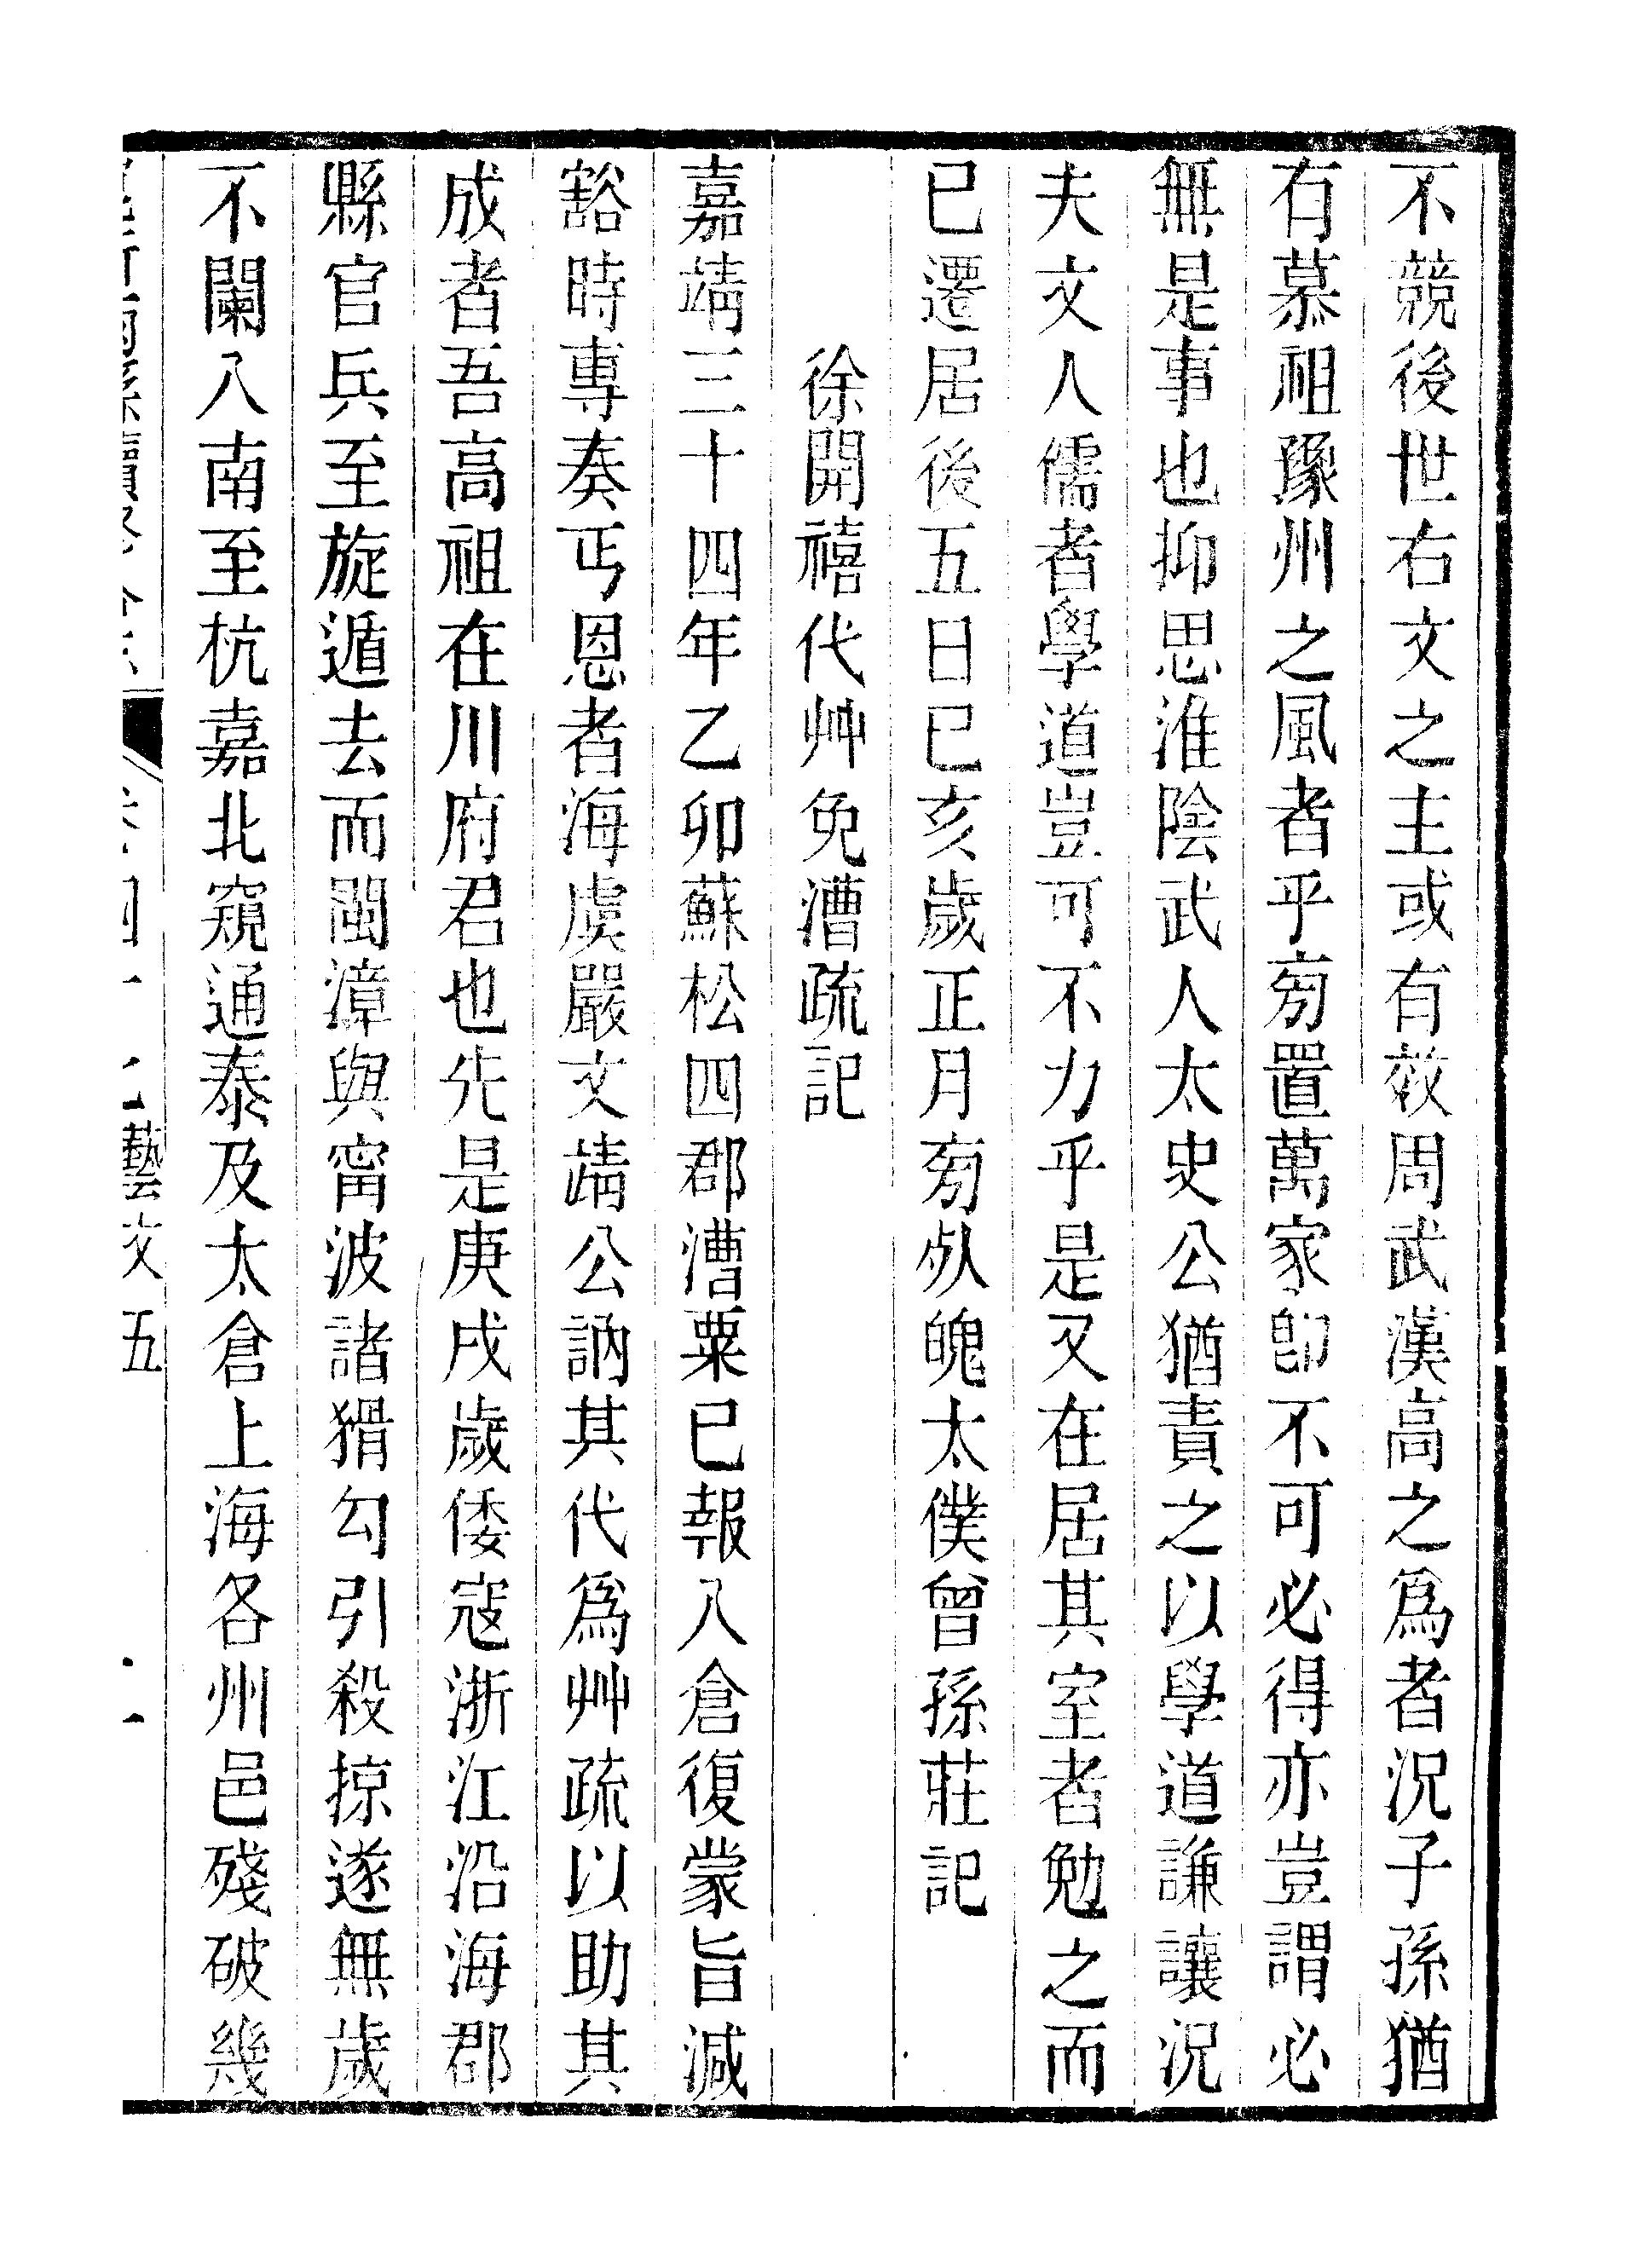 不競後世右文之主或有效周武漢高之爲者況子孫猶
有慕祖豫州之風者乎旁置萬家卽不可必得亦豈謂必
無是事也抑思淮陰武人太史公猶責之以學道謙讓況
夫文人儒者學道豈可不力乎是又在居其室者勉之而
已遷居後五日己亥歲正月旁𣦸魄太僕曾孫莊記
徐開禧代艸免漕疏記
嘉靖三十四年乙卯蘇松四郡漕粟已報入倉復蒙旨減
豁時專奏丐恩者海虞嚴文靖公訥其代爲艸疏以助其
成者吾高祖在川府君也先是庚戌歲倭寇浙江沿海郡
縣官兵至旋遁去而閩漳與甯波諸猾勾引殺掠遂無歲
不闌入南至杭嘉北窺通泰及太倉上海各州邑殘破幾
藝文五